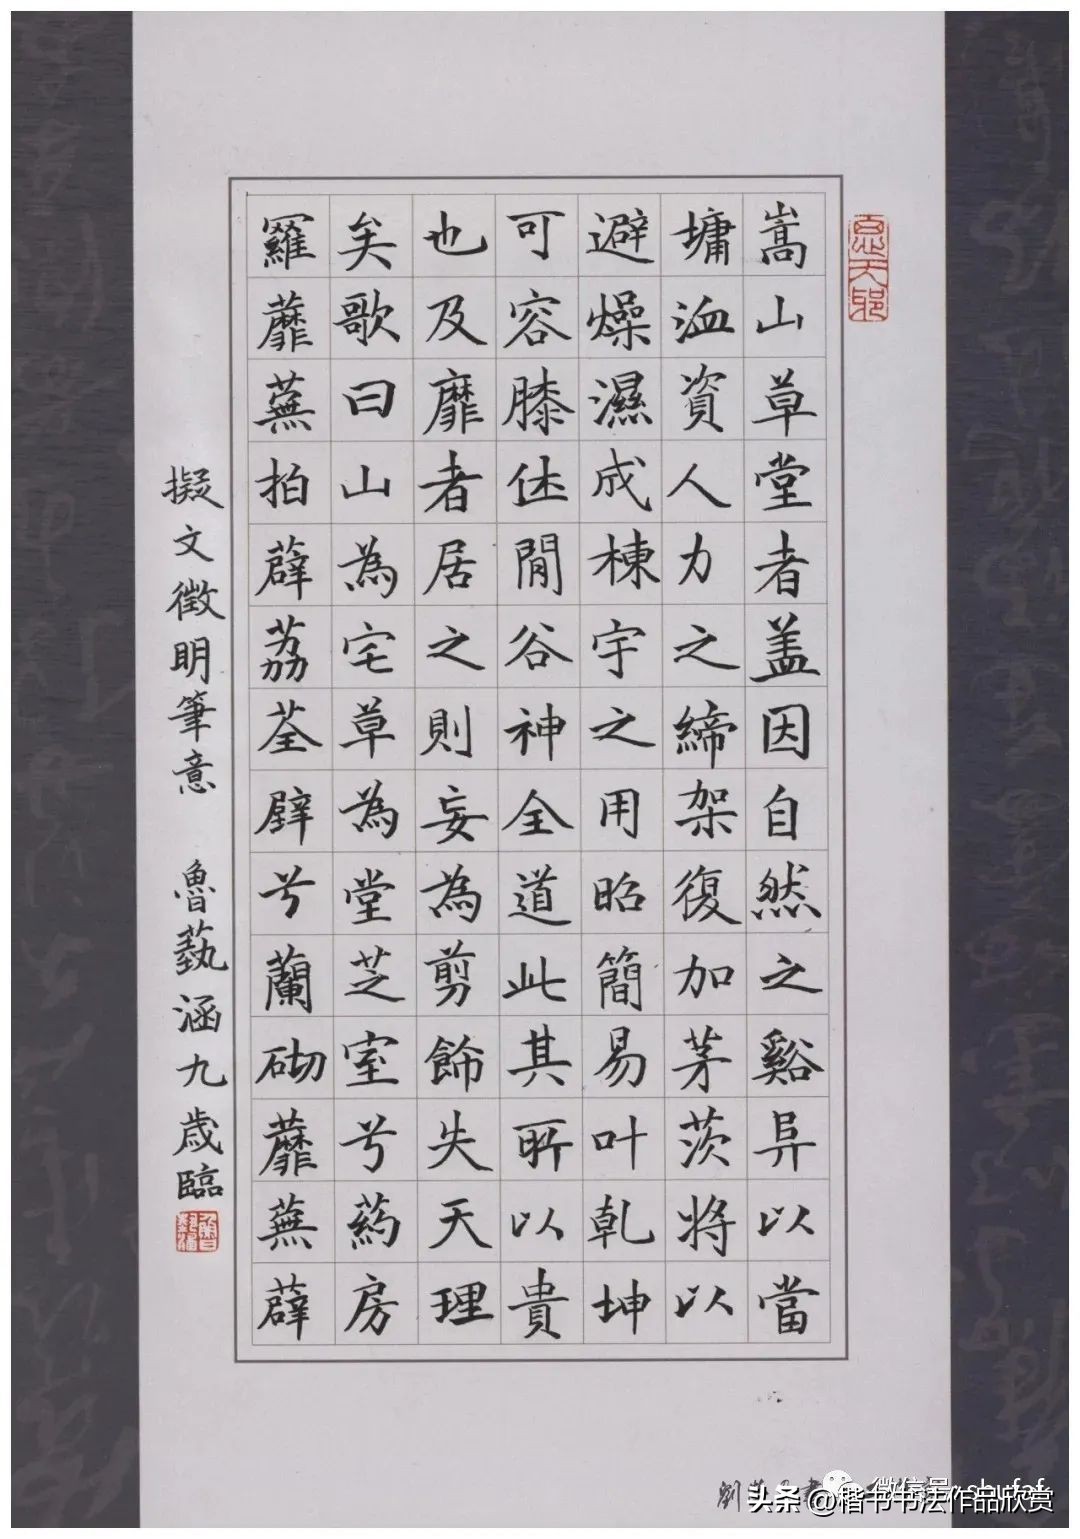 嵩山草堂者盖因自然之谿异以當
墉洫資人力之締架復加茅茨将以
避燥濕成棟宇之用昭簡易叶乾坤
可容膝休閒谷神全道此其所以貴
也及靡者居之則妄為剪飾失天理
矣歌曰山為宅草為堂芝室兮葯房
羅蘼蕪拍薜荔荃壁兮蘭砌蘼蕪薜
擬文徵明筆意 魯藝涵九歲臨
頭条 @楷书书法作品欣赏
微信号: shufaf